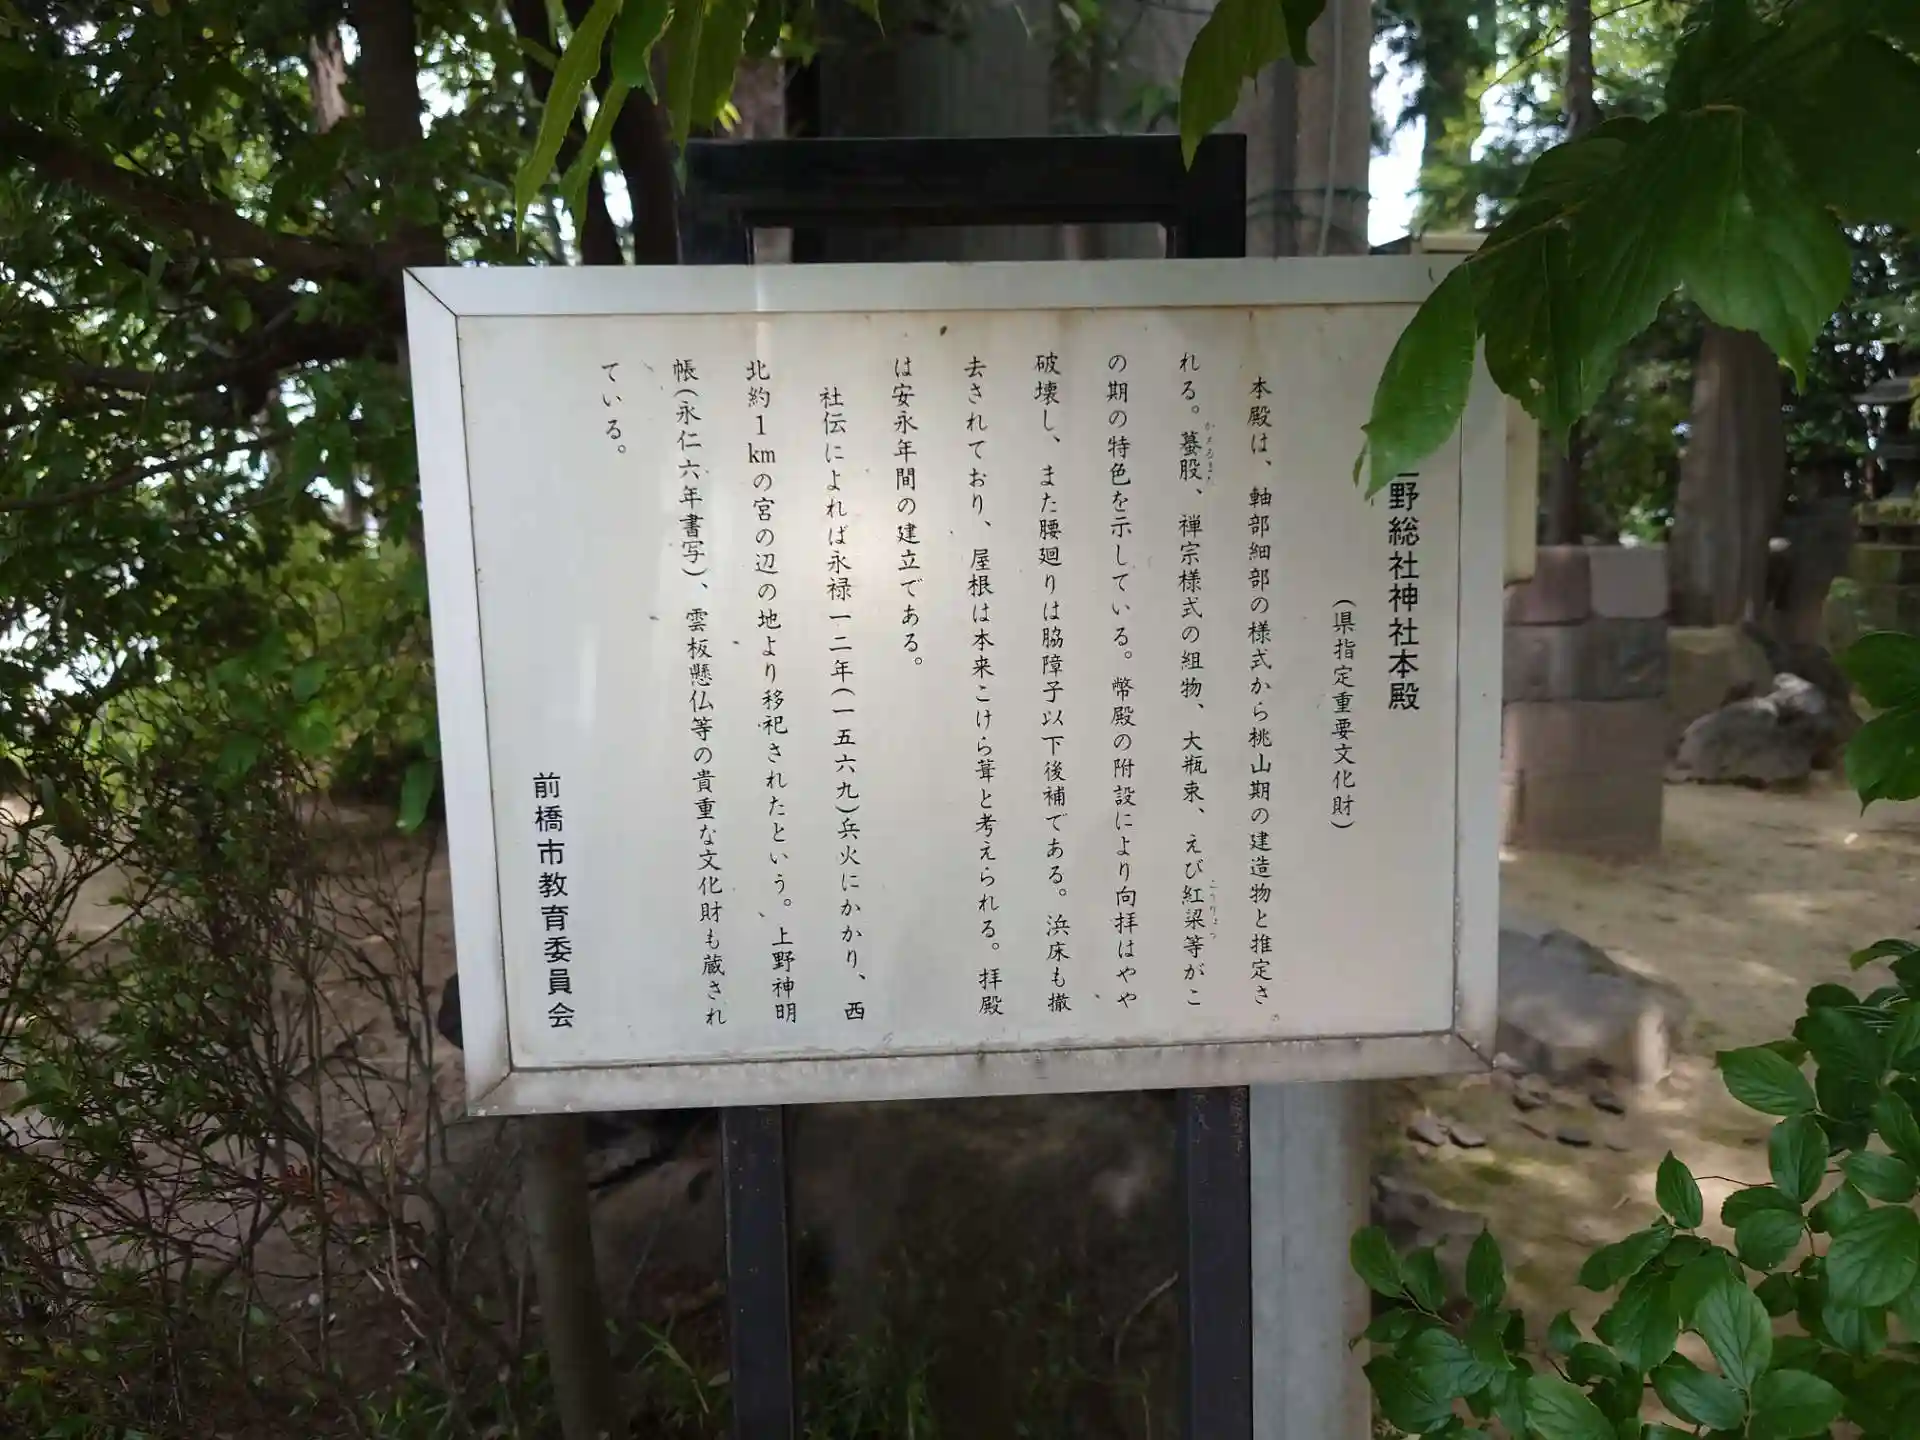 野総社神社本殿
(県指定重要文化財)
本殿は、軸部細部の様式から桃山期の建造物と推定さ
れる。蟇股、禅宗様式の組物、大瓶束、えび紅梁等がこ
の期の特色を示している。幣殿の附設により向拝はやや
破壊し、また腰廻りは脇障子以下後補である。浜床も撤
去されており、屋根は本来こけら葺と考えられる。拝殿
は安永年間の建立である。
社伝によれば永禄一二年(一五六九)兵火にかかり、西
北約1kmの宮の辺の地より移祀されたという。上野神明
帳(永仁六年書写)、雲板懸仏等の貴重な文化財も蔵され
ている。
前橋市教育委員会